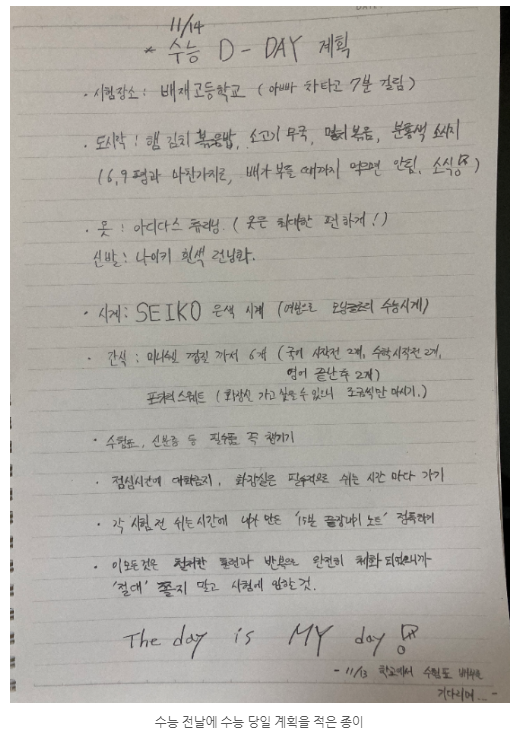 11/14
* 수능 D-DAY 계획
· 시험장소 : 배재고등학교 (아빠 차타고 7분 걸림)
· 도시락 : 햄 김치 볶음밥, 소고기 무국, 멸치 볶음, 분홍색 소시지
(6, 9평과 마찬가지로, 배가 부를 때까지 먹으면 안됨, 소식!)
· 옷 : 아디다스 츄리닝. (옷은 최대한 편하게!)
신발 : 나이키 흰색 런닝화.
· 시계 : SEIKO 은색 시계 (여분으로 수능시계)
· 간식 : 미니쉘 껍질 까서 6개 (국어 시작전 2개, 수학 시작전 2개,
영어 끝난 후 2개)
포카리 스웨트 (화장실 가고 싶을 수 있으니 조금씩만 마시기.)
· 수험표, 신분증 등 필수품 꼭 챙기기
· 점심시간에 대화금지, 화장실은 필수적으로 쉬는 시간 마다 가기
· 각 시험 전 쉬는시간에 내가 만든 '15분 끝장내기 노트' 정독하기
· 이 모든것은 철저한 훈련과 반복으로 완전히 체화 되었으니까
'절대' 쫄지 말고 시험에 임할 것.
The day is MY day!
- 11/13 학교에서 수험표 배부를
기다리며... -
수능 전날에 수능 당일 계획을 적은 종이